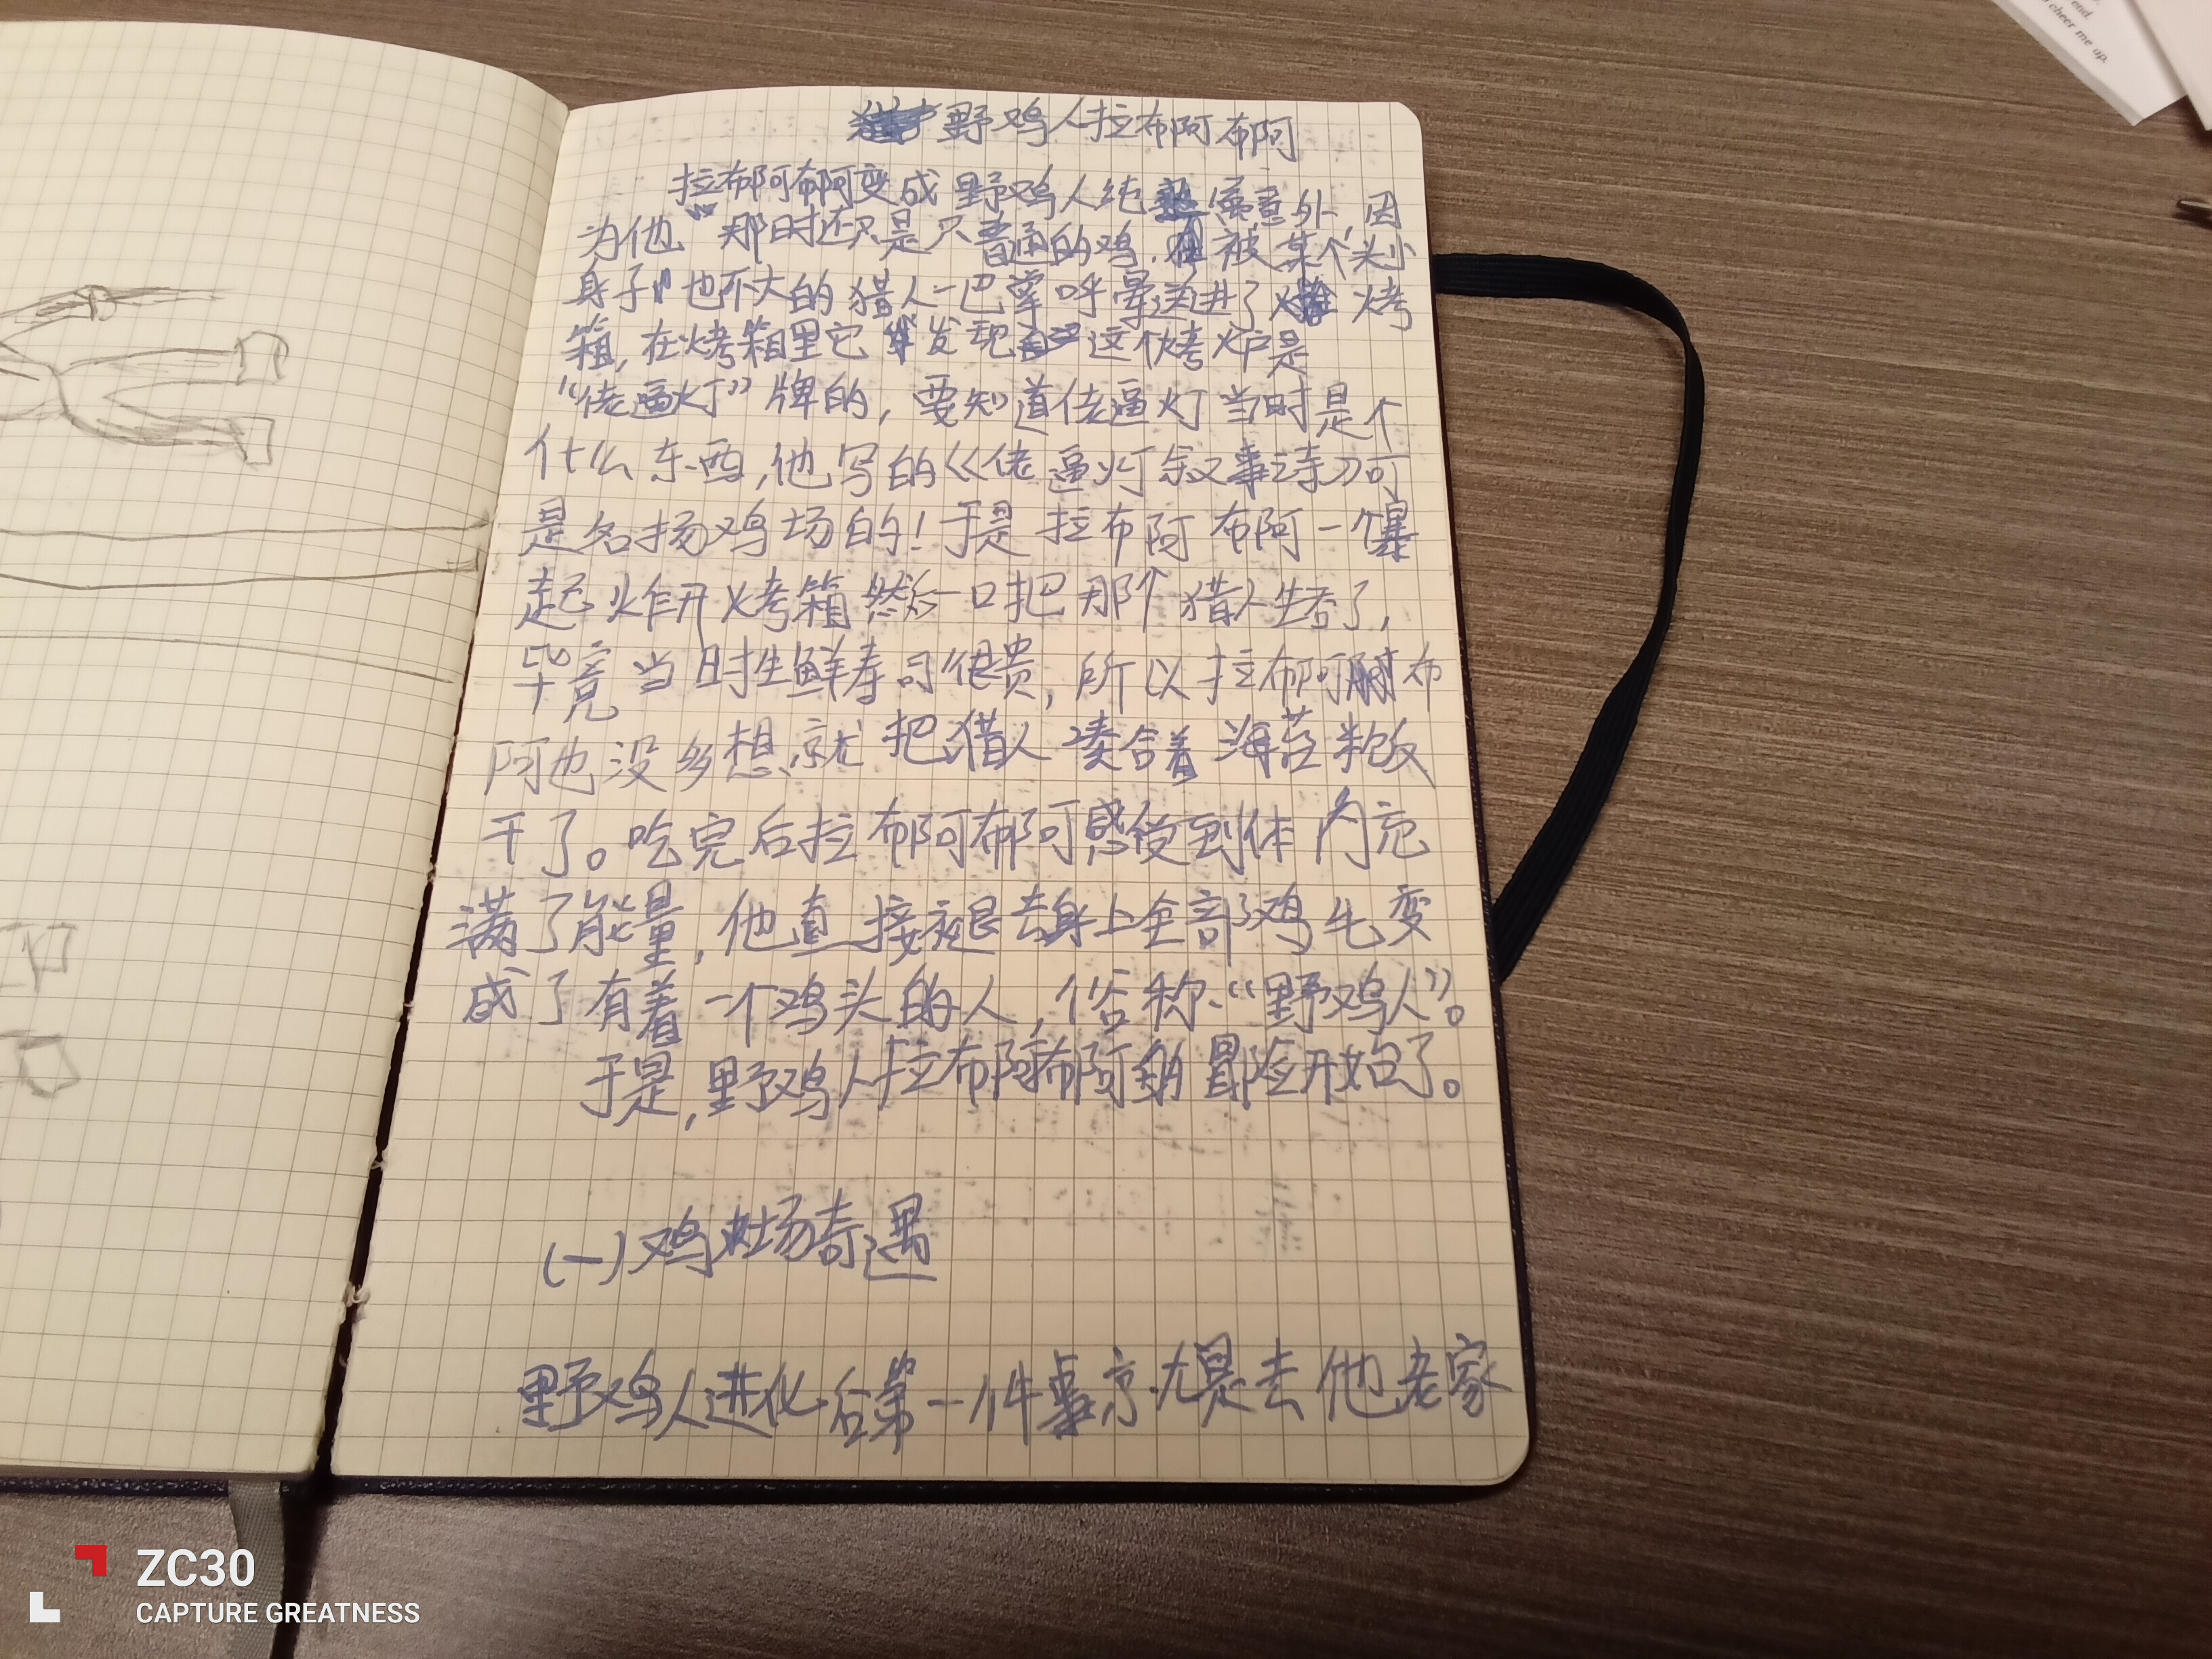 end.
cheer me up.
野鸡人拉布阿布阿
拉布阿布阿变成野鸡人纯属意外,因
为他那时还只是只普通的鸡,被某个头小
身子也不大的猎人一巴掌呼晕送进了烤
箱,在烤箱里它发现这个烤炉是
“佬逼灯”牌的,要知道佬逼灯当时是个
什么东西,他写的《佬逼灯叙事诗》可
是名扬鸡场的!于是拉布阿布阿一个暴
起炸开烤箱然后一口把那个猎人生吞了,
毕竟当时生鲜寿司很贵,所以拉布阿布
阿也没多想,就把猎人凑合着海苔米饭
干了。吃完后拉布阿布阿感受到体内充
满了能量,他直接褪去身上全部鸡毛变
成了有着一个鸡头的人,俗称“野鸡人”。
于是,野鸡人拉布阿布阿的冒险开始了。
(一)鸡场奇遇
野鸡人进化后第一件事就是去他老家
ZC30
CAPTURE GREATNESS